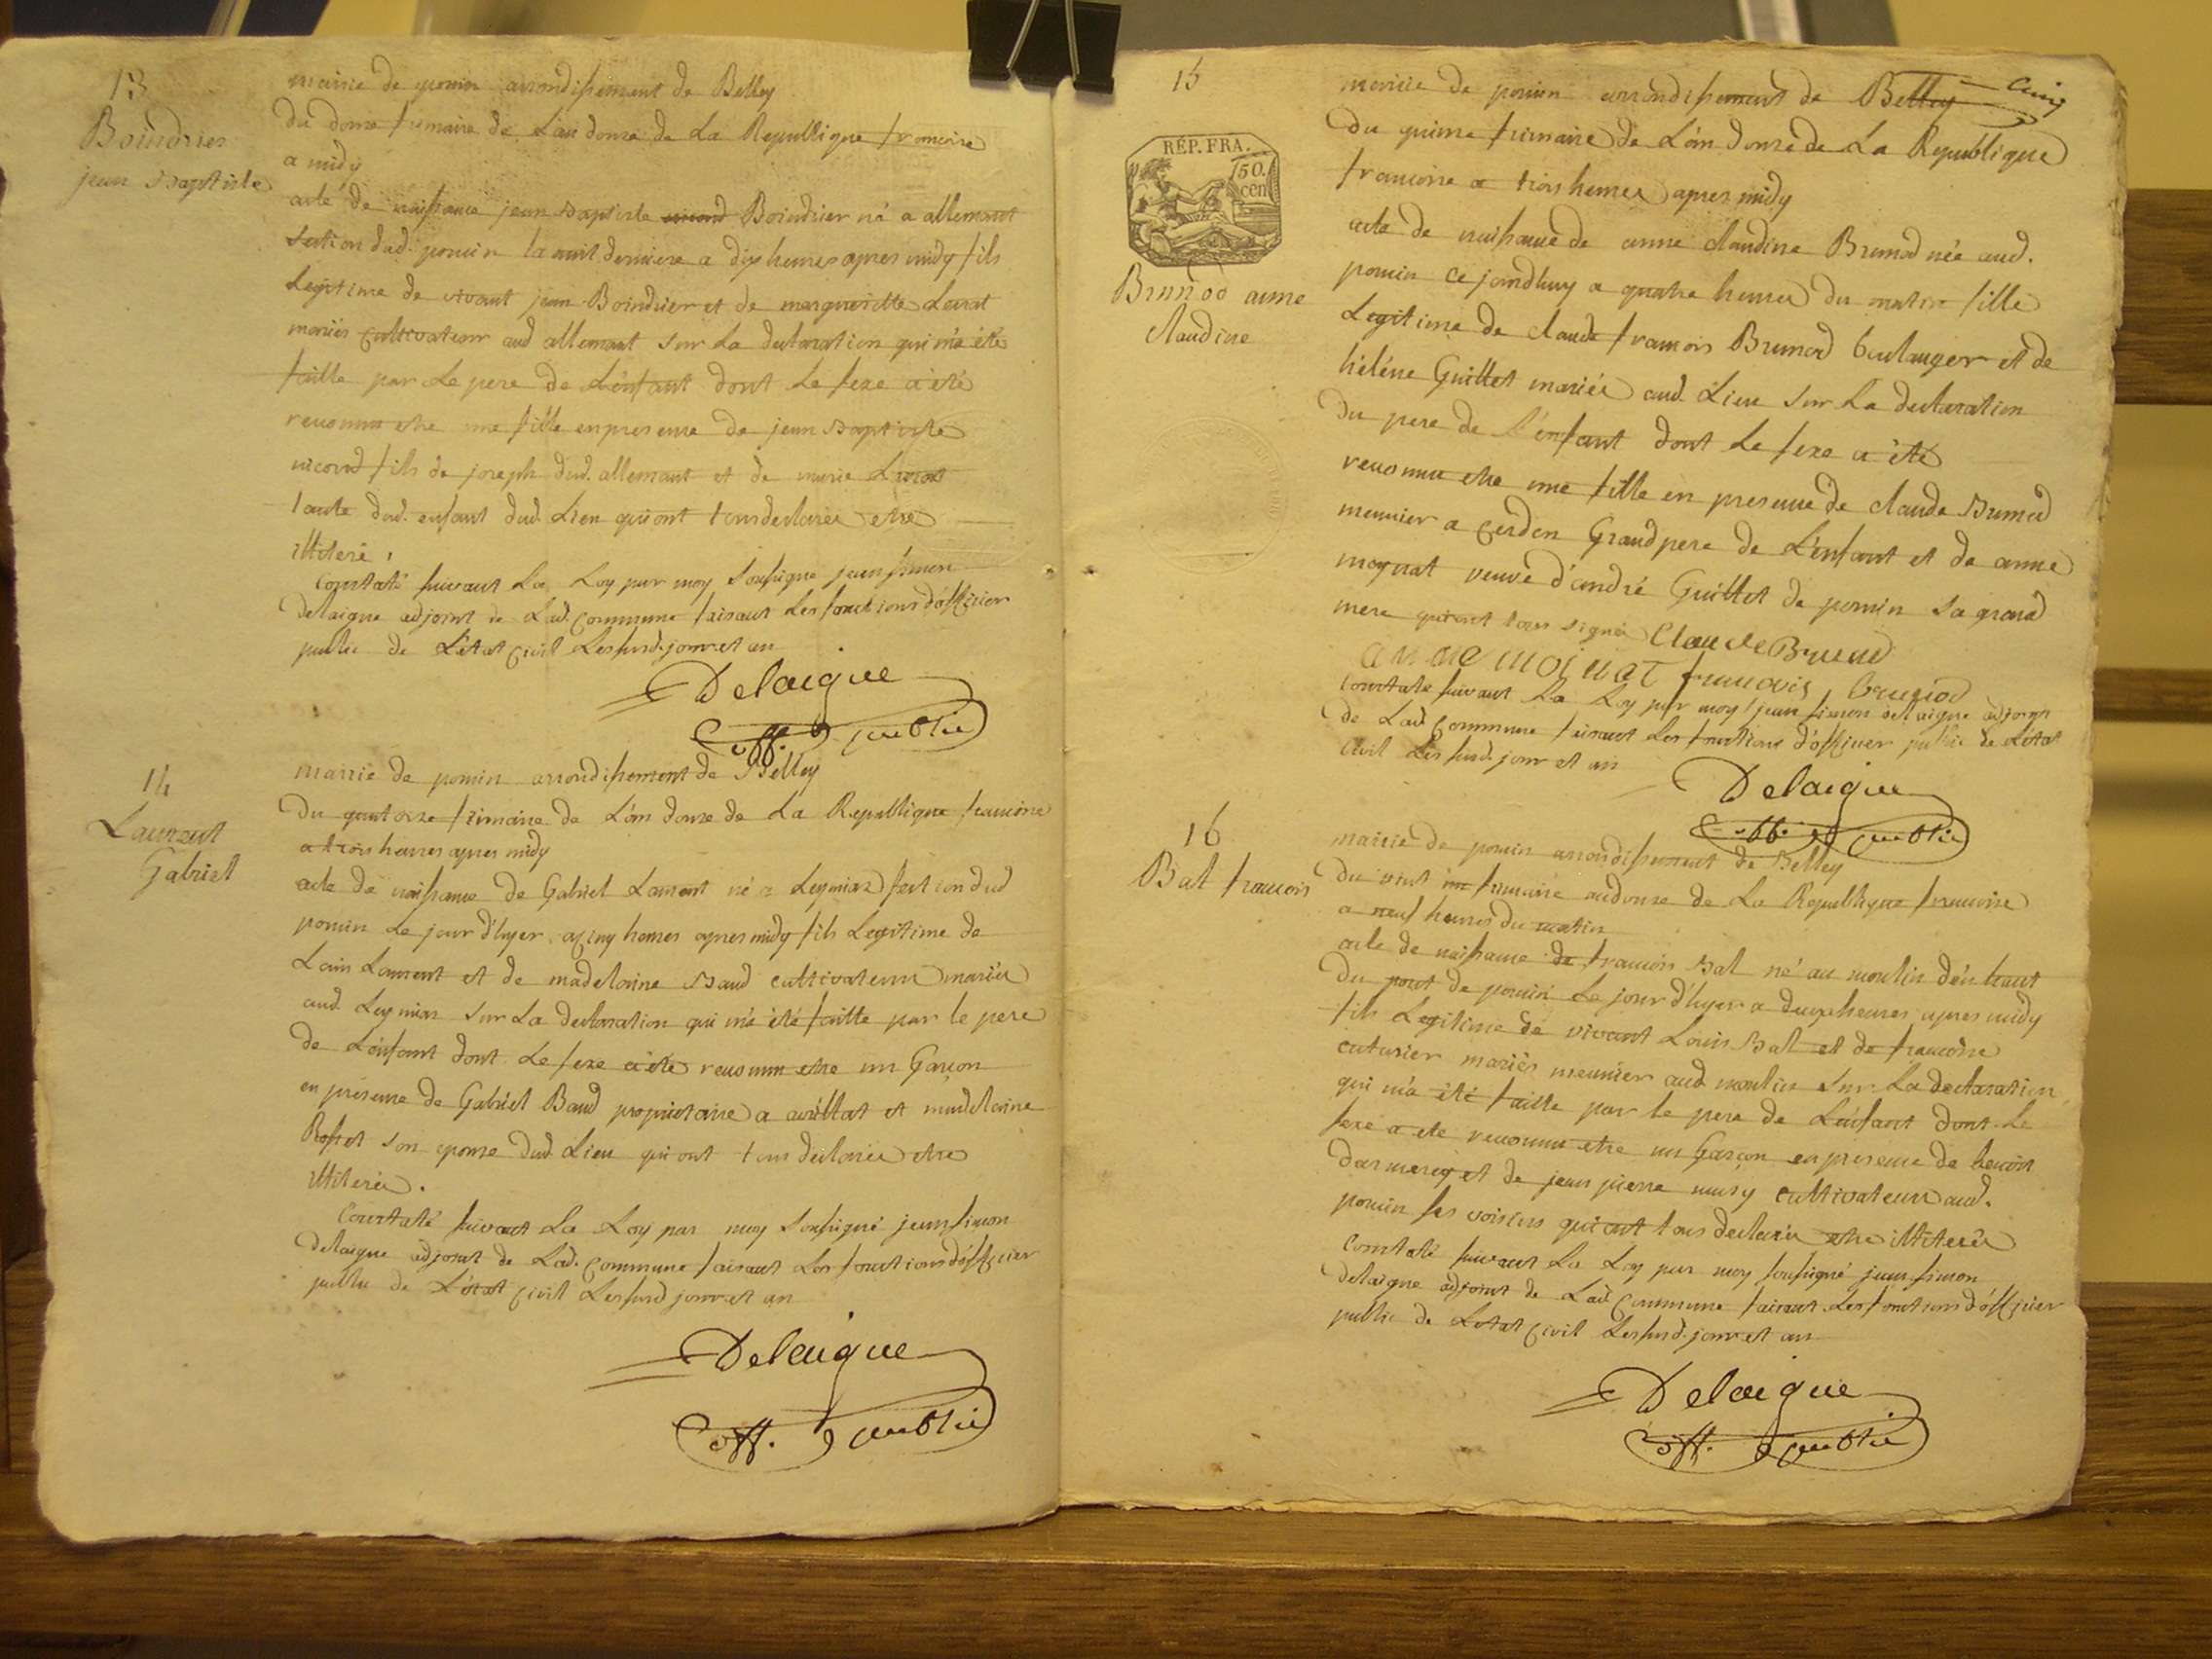 13
Boindrier
jean Baptiste
mairie de poncin arrondissement de Belley
du douze frimaire de L'an douze de La Republique francoise
a midy
acte de naissance jean Baptiste Boindrier né a allemant
section dud. poncin la nuit derniere a dix heures apres midy fils
Legitime de vivant jean Boindrier et de margueritte Levrat
mariés cultivateur aud allemant sur La declaration qui m'a été
faitte par Le pere de L'enfant dont Le sexe a été
reconnu etre une fille en presence de jean Baptiste
nicoud fils de joseph dud. allemant et de marie Levrat
tante dud. enfant dud. Lieu qui ont tous declarés etre
illiteré.
Constaté suivant La Loy par moy Soussigné jean simon
delaigue adjoint de Lad. Commune faisant Les fonctions d'officier
public de L'état Civil Les susd. jour et an
Delaigue
off. public
14
Laurent
Gabriel
mairie de poncin arrondissement de Belley
Du quatorze frimaire de L'an douze de La Republique francoise
a trois heures apres midy
acte de naissance de Gabriel Laurent né a Leymiaz section dud
poncin Le jour d'hyer a cinq heures apres midy fils Legitime de
Louis Laurent et de madelaine Baud cultivateurs mariés
aud Leymiaz Sur La declaration qui m'a été faitte par le pere
de L'enfant dont Le sexe a été reconnu etre un Garçon
en presence de Gabriel Baud proprietaire a avrillat et madelaine
Rosset son epouse dud. Lieu qui ont tous declarés etre
illiterés.
Constaté suivant La Loy par moy Soussigné jean simon
delaigue adjoint de Lad. Commune faisant Les fonctions d'officier
public de L'état Civil Les susd jour et an
Delaigue
off. public
Cinq
15
RÉP. FRA.
50.
cen
Brunod anne
claudine
mairie de poncin arrondissement de Belley
Du quinze frimaire de L'an douze de La Republique
francoise a trois heures apres midy
acte de naissance de anne claudine Brunod née aud.
poncin ce jourdhuy a quatre heures du matin fille
Legitime de claude francois Brunod boulanger et de
hélène Guillet mariés aud. Lieu Sur La declaration
du pere de L'enfant dont Le sexe a été
reconnu etre une fille en presence de claude Brunod
meunier a Cerdon Grand pere de L'enfant et de anne
moynat veuve d'andré Guillet de poncin Sa grand
mere qui ont tous signés Claude Brunod
anne moinat francois Brunod
Constaté suivant La Loy par moy jean simon delaigue adjoint
de Lad. Commune faisant Les fonctions d'officier public de L'état
Civil Les susd. jour et an
Delaigue
off. public
16
Bal francois
mairie de poncin arrondissement de Belley
Du vint un frimaire an douze de La Republique francoise
a neuf heures du matin
acte de naissance de francois Bal né au moulin d'en haut
du pont de poncin Le jour d'hyer a deux heures apres midy
fils Legitime de vivant Louis Bal et de francoise
cuturier mariés meunier aud. moulin Sur La declaration
qui m'a été faitte par le pere de L'enfant dont Le
sexe a ete reconnu etre un Garçon en presence de benoit
darmerey et de jean pierre mury cultivateurs aud.
poncin ses voisins qui ont tous declarés etre illiterés
Constaté suivant La Loy par moy soussigné jean simon
delaigue adjoint de Lad. Commune faisant Les fonctions d'officier
public de L'état Civil Les susd. jour et an
Delaigue
off. public